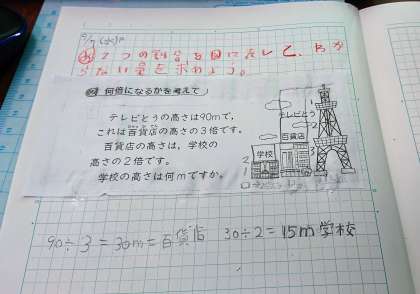 9/7(水)
め 2つの割合を図に表して、わか
らない量を求めよう。
何倍になるかを考えて
テレビとうの高さは90mで、
これは百貨店の高さの3倍です。
百貨店の高さは、学校の
高さの2倍です。
学校の高さは何mですか。
テレビとう
百貨店
学校
2
1
3
2
1
90÷3=30m=百貨店 30÷2=15m学校